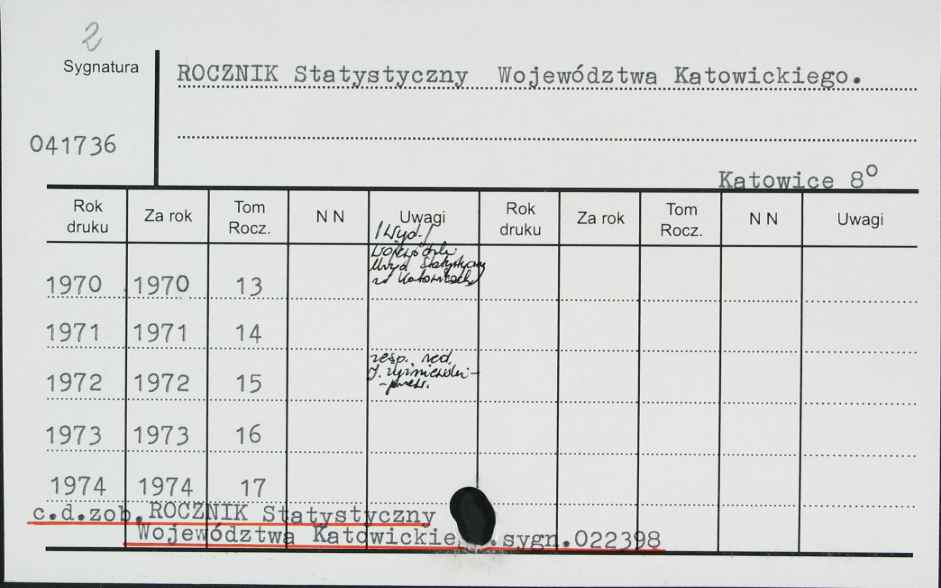 2
Sygnatura
ROCZNIK Statystyczny Województwa Katowickiego.
041736
Katowice 8°
Rok druku Za rok Tom Rocz. N N Uwagi Rok druku Za rok Tom Rocz. N N Uwagi
/Wyd./
Urząd Statystyczny
w Katowicach/
1970 1970 13
1971 1971 14
zesp. red.
1972 1972 15
1973 1973 16
1974 1974 17
c.d.zob.ROCZNIK Statystyczny
Województwa Katowickie .sygn.022398